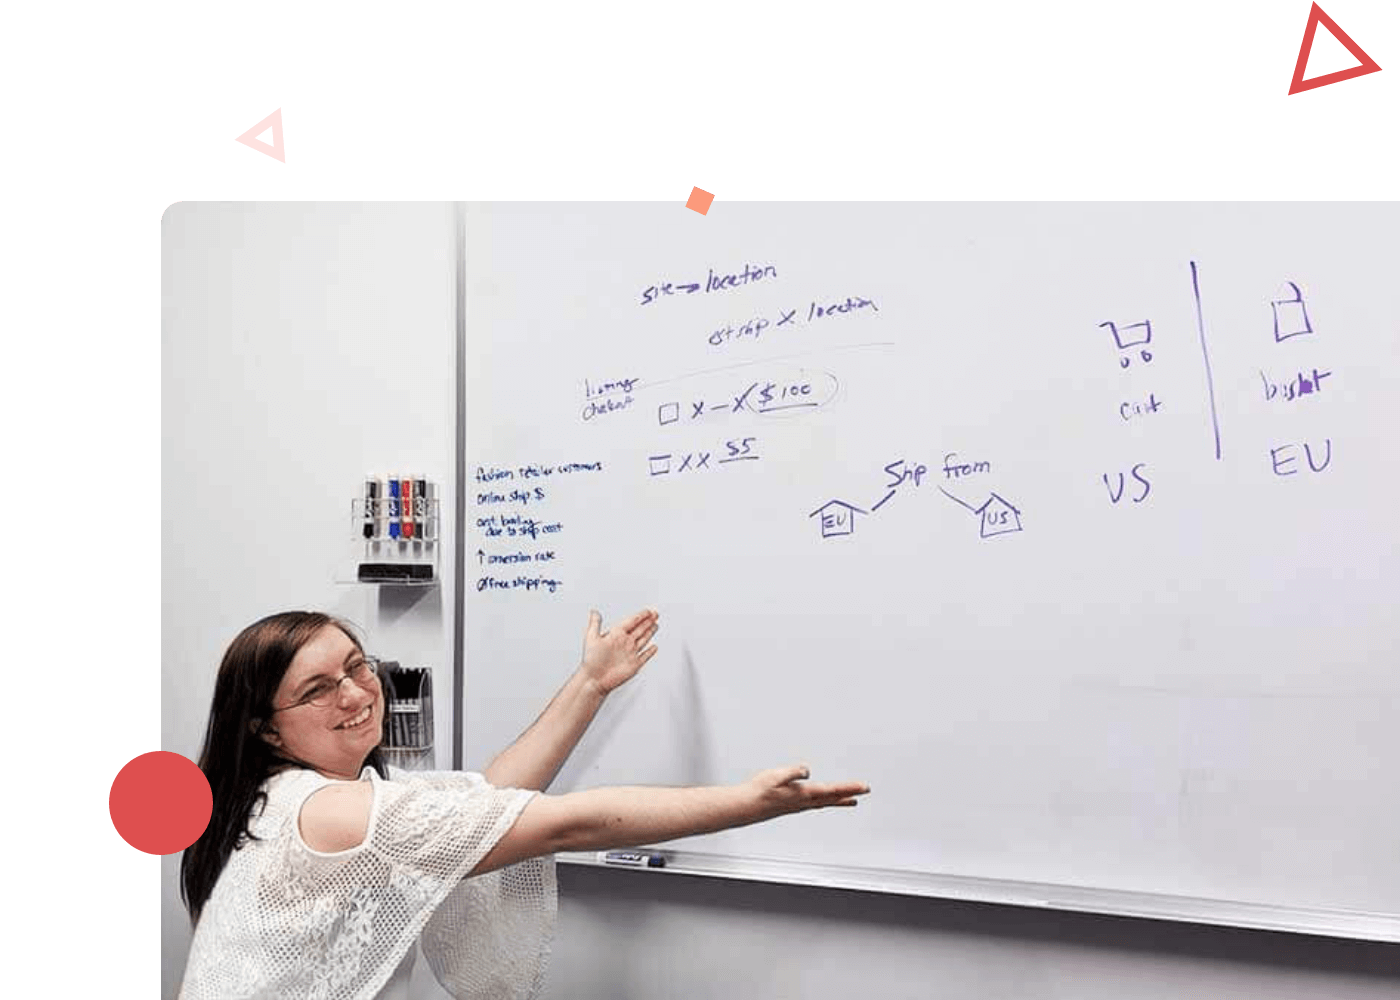 site → location
est ship X location
listing
checkout
X – X $100
X X $5
fashion retailer customers
online ship $
due to ship cost
↑ conversion rate
free shipping
Ship from
EU
US
cart
US
basket
EU